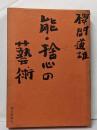 道雄
能・捨心の
藝術